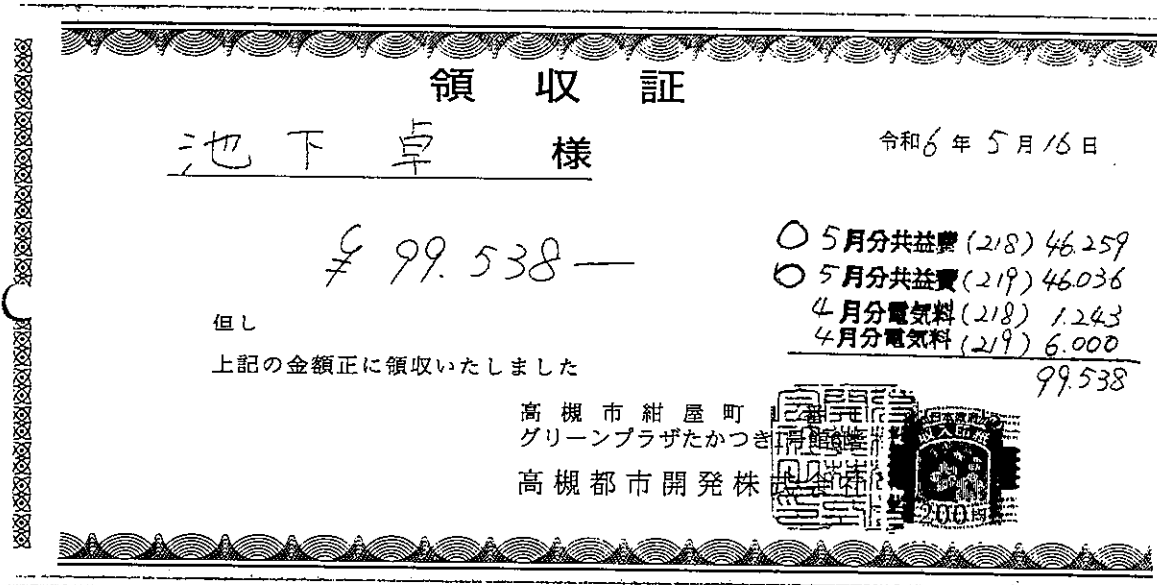 領収証
池下卓 様
令和6年5月16日
¥99.538―
○5月分共益費(218) 46.259
○5月分共益費(219) 46.036
4月分電気料(218) 1.243
4月分電気料(219) 6.000
99.538
但し
上記の金額正に領収いたしました
高槻市紺屋町
グリーンプラザたかつき1号館
高槻都市開発株式会社
200円